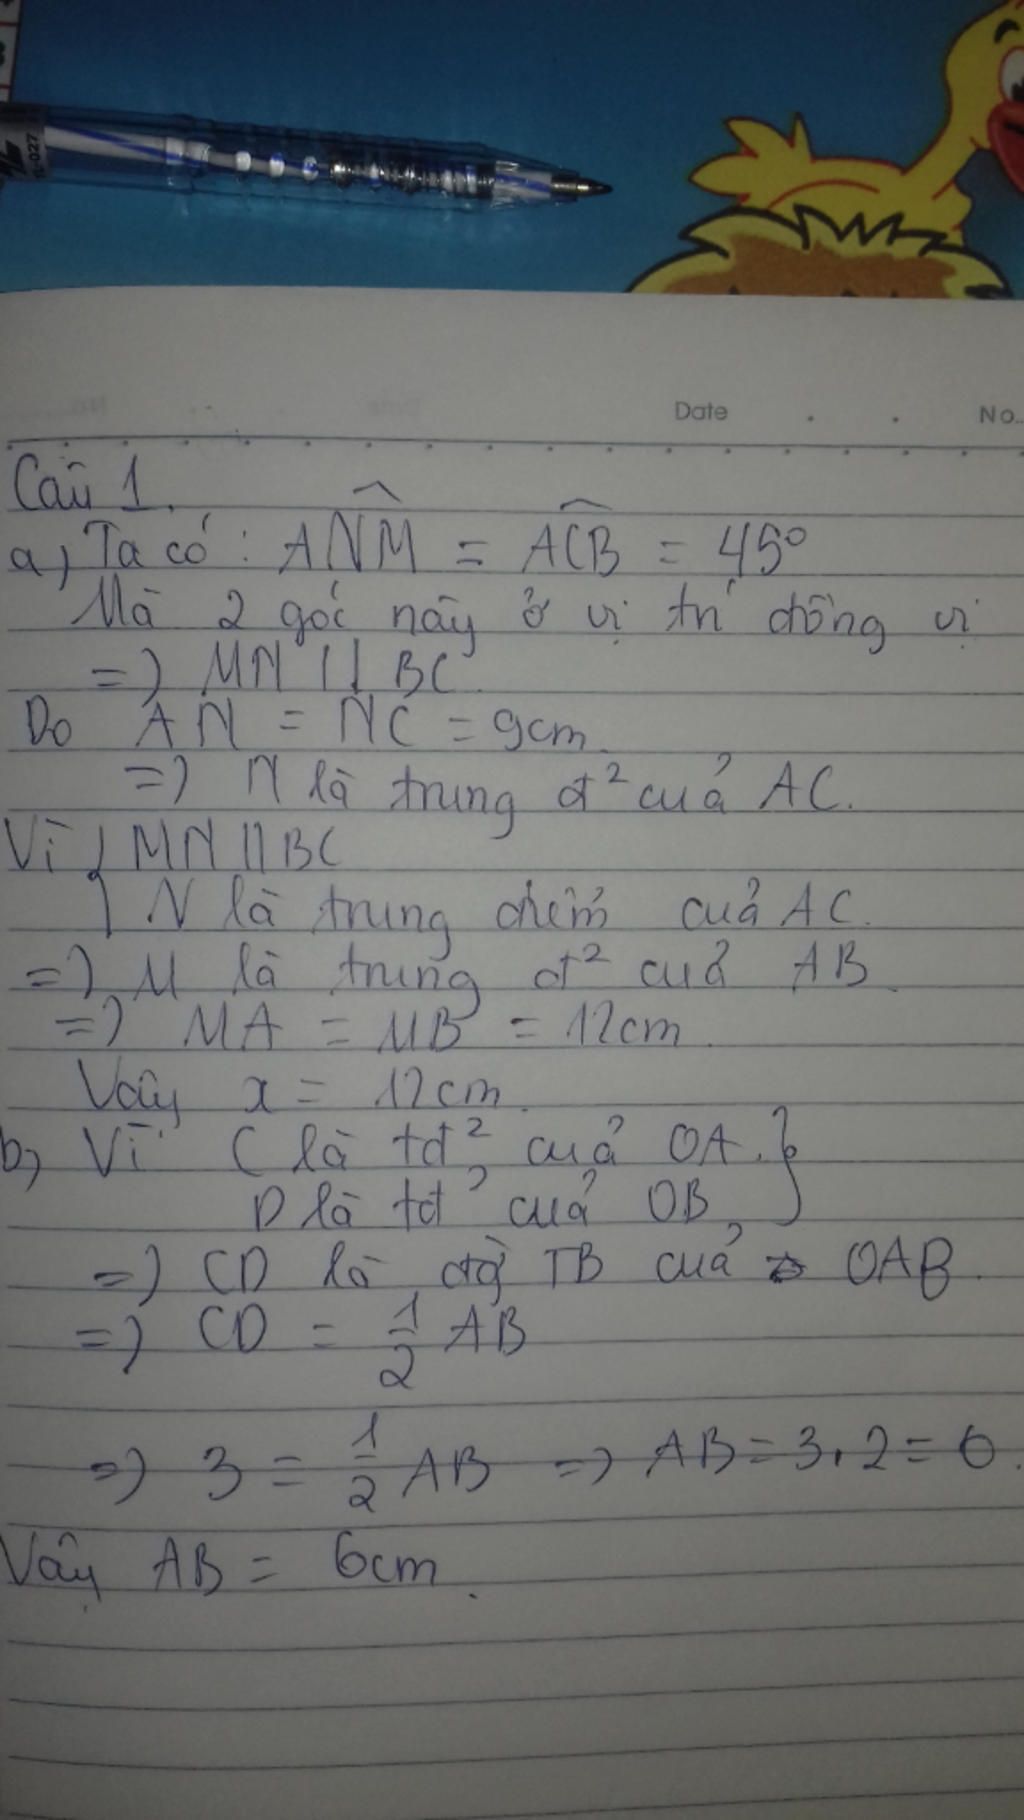 TL-027
Date
No..
Câu 1.
a, Ta có: ANM = ACB = 45°
Mà 2 góc này ở vị trí đồng vị
=) MN // BC
Do AN = NC = 9cm.
=) N là trung đ² của AC.
Vì { MN // BC
N là trung điểm của AC.
=) M là trung đ² của AB.
=) MA = MB = 12cm.
Vậy x = 12cm.
b, Vì C là tđ² của OA. }
D là tđ² của OB,
=) CD là đg TB của OAB.
=) CD = 1/2 AB
=) 3 = 1/2 AB =) AB = 3.2 = 6.
Vậy AB = 6cm.